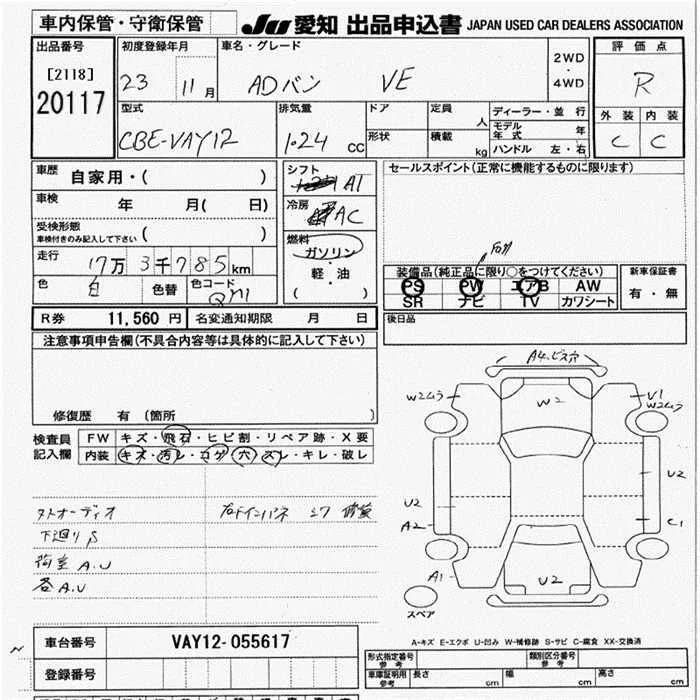 車内保管・守衛保管
JU 愛知 出品申込書 JAPAN USED CAR DEALERS ASSOCIATION
出品番号
[2118]
20117
初度登録年月
23 11 月
車名・グレード
ADバン VE
2WD
・
4WD
評価点
R
外装 内装
C C
型式
CBE-VAY12
排気量
1.24 CC
ドア
形状
定員
人
積載
kg
ディーラー・並行
モデル年式 年
ハンドル 左・右
車歴 自家用・( )
車検 年 月( 日)
受検形態
車検付きのみ記入して下さい ( )
走行 17万3千785km
色 白 色替 色コード QM1
シフト
AT
冷房
AC
燃料
ガソリン
・
軽・油
( )
セールスポイント(正常に機能するものに限ります)
装備品(純正品に限り○をつけてください)
PS PW エアB AW
SR ナビ TV カワシート
新車保証書
有・無
後日品
R券 11,560 円 名変通知期限 月 日
注意事項申告欄(不具合内容等は具体的に記入して下さい)
修復歴 有 (箇所 )
検査員記入欄
FW キズ・飛石・ヒビ割・リペア跡・X要
内装 キズ・汚レ・コゲ・穴・スレ・キレ・破レ
外オーディオ
下廻りS
荷室A.U
各A.U
A4.ビス穴
W2ムラ
W2
V1
W2ムラ
U2
U2
A2
C1
A1
U2
スペア
A-キズ E-エクボ U-凹み W-補修跡 S-サビ C-腐食 XX-交換済
車台番号 VAY12-055617
登録番号
形式指定番号 参考
類別区分番号 参考
車庫証明用 参考 長さ cm 幅 cm 高さ cm